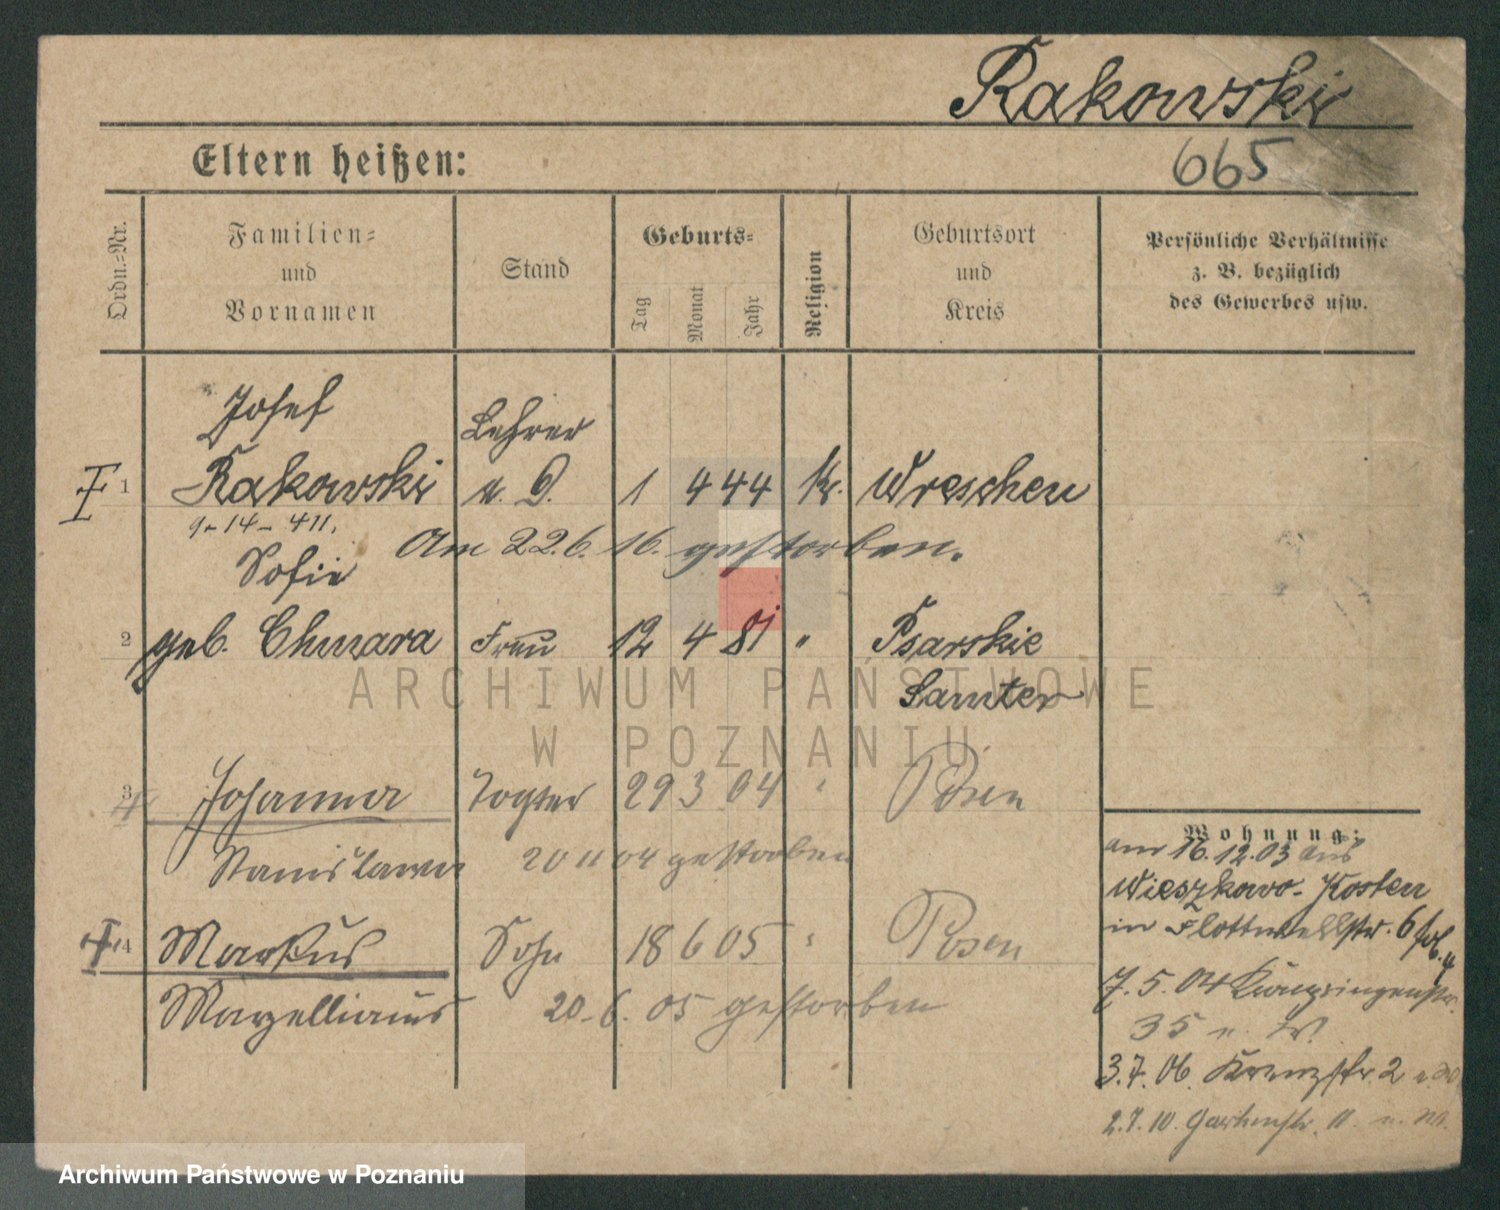 Rakowski
Eltern heißen:
665
Ordn.=Nr.
Familien=
und
Vornamen
Stand
Geburts=
Tag
Monat
Jahr
Religion
Geburtsort
und
Kreis
Persönliche Verhältnisse
z. B. bezüglich
des Gewerbes usw.
Josef Lehrer
1 Rakowski 1 4 44 K. Wreschen
9-14-411.
Am 22.6.16. gestorben.
Sofie
2 geb. Chmara Frau 12 4 81 " Psarskie
Samter
3 Johanna Tochter 29 3 04 " Posen
Stanislawa 20 11 04 gestorben
4 Markus Sohn 18 6 05 " Posen
Marzellianus 20.6.05 gestorben
Wohnung:
am 16.12.03 aus
Wieszkowo-Kosten
in Flottwellstr. 6
7.5.04
35
3.7.06. Kreuzstr. 2
2.7.10. Gartenstr. 11
ARCHIWUM PAŃSTWOWE
W POZNANIU
Archiwum Państwowe w Poznaniu